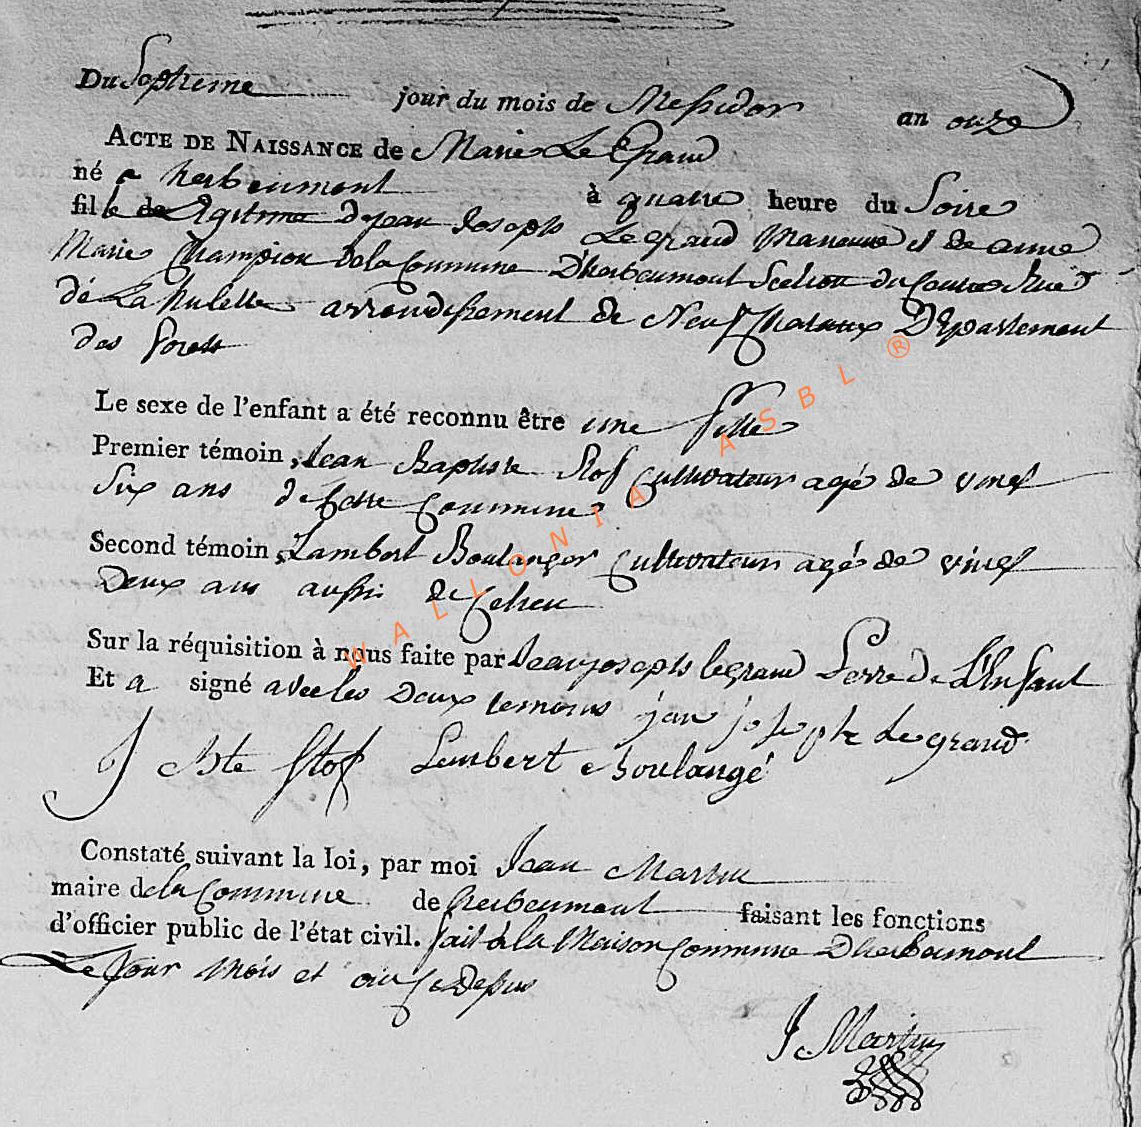 Du Septieme jour du mois de Messidor an onze
ACTE DE NAISSANCE de Marie Le Grand
né a herbeumont à quatre heure du Soire
fille de Legitime de jean Joseph Le grand Maneuve et de anne
Marie Champion de la Commune D'herbeumont Section du
de La Nulette arrondissement de Neufchataux Departement
des forets
Le sexe de l'enfant a été reconnu être une fille
Premier témoin, Jean Baptiste Stof Cultivateur agé de vingt
Six ans de Cette Commune
Second témoin, Lambert Boulanger Cultivateur agé de vingt
Deux ans aussi de Celieu
Sur la réquisition à nous faite par Jean joseph legrand Perre de L'Enfant
Et a signé avec les Deux temoins jean joseph le grand
J Bte Stof Lembert Boulangé
Constaté suivant la loi, par moi Jean Martin
maire de la Commune de herbeumont faisant les fonctions
d'officier public de l'état civil. fait à la Maison Commune D'herbeumont
Le Jour Mois et an Cy Desus
J Martin
WALLONIA ASBL ®